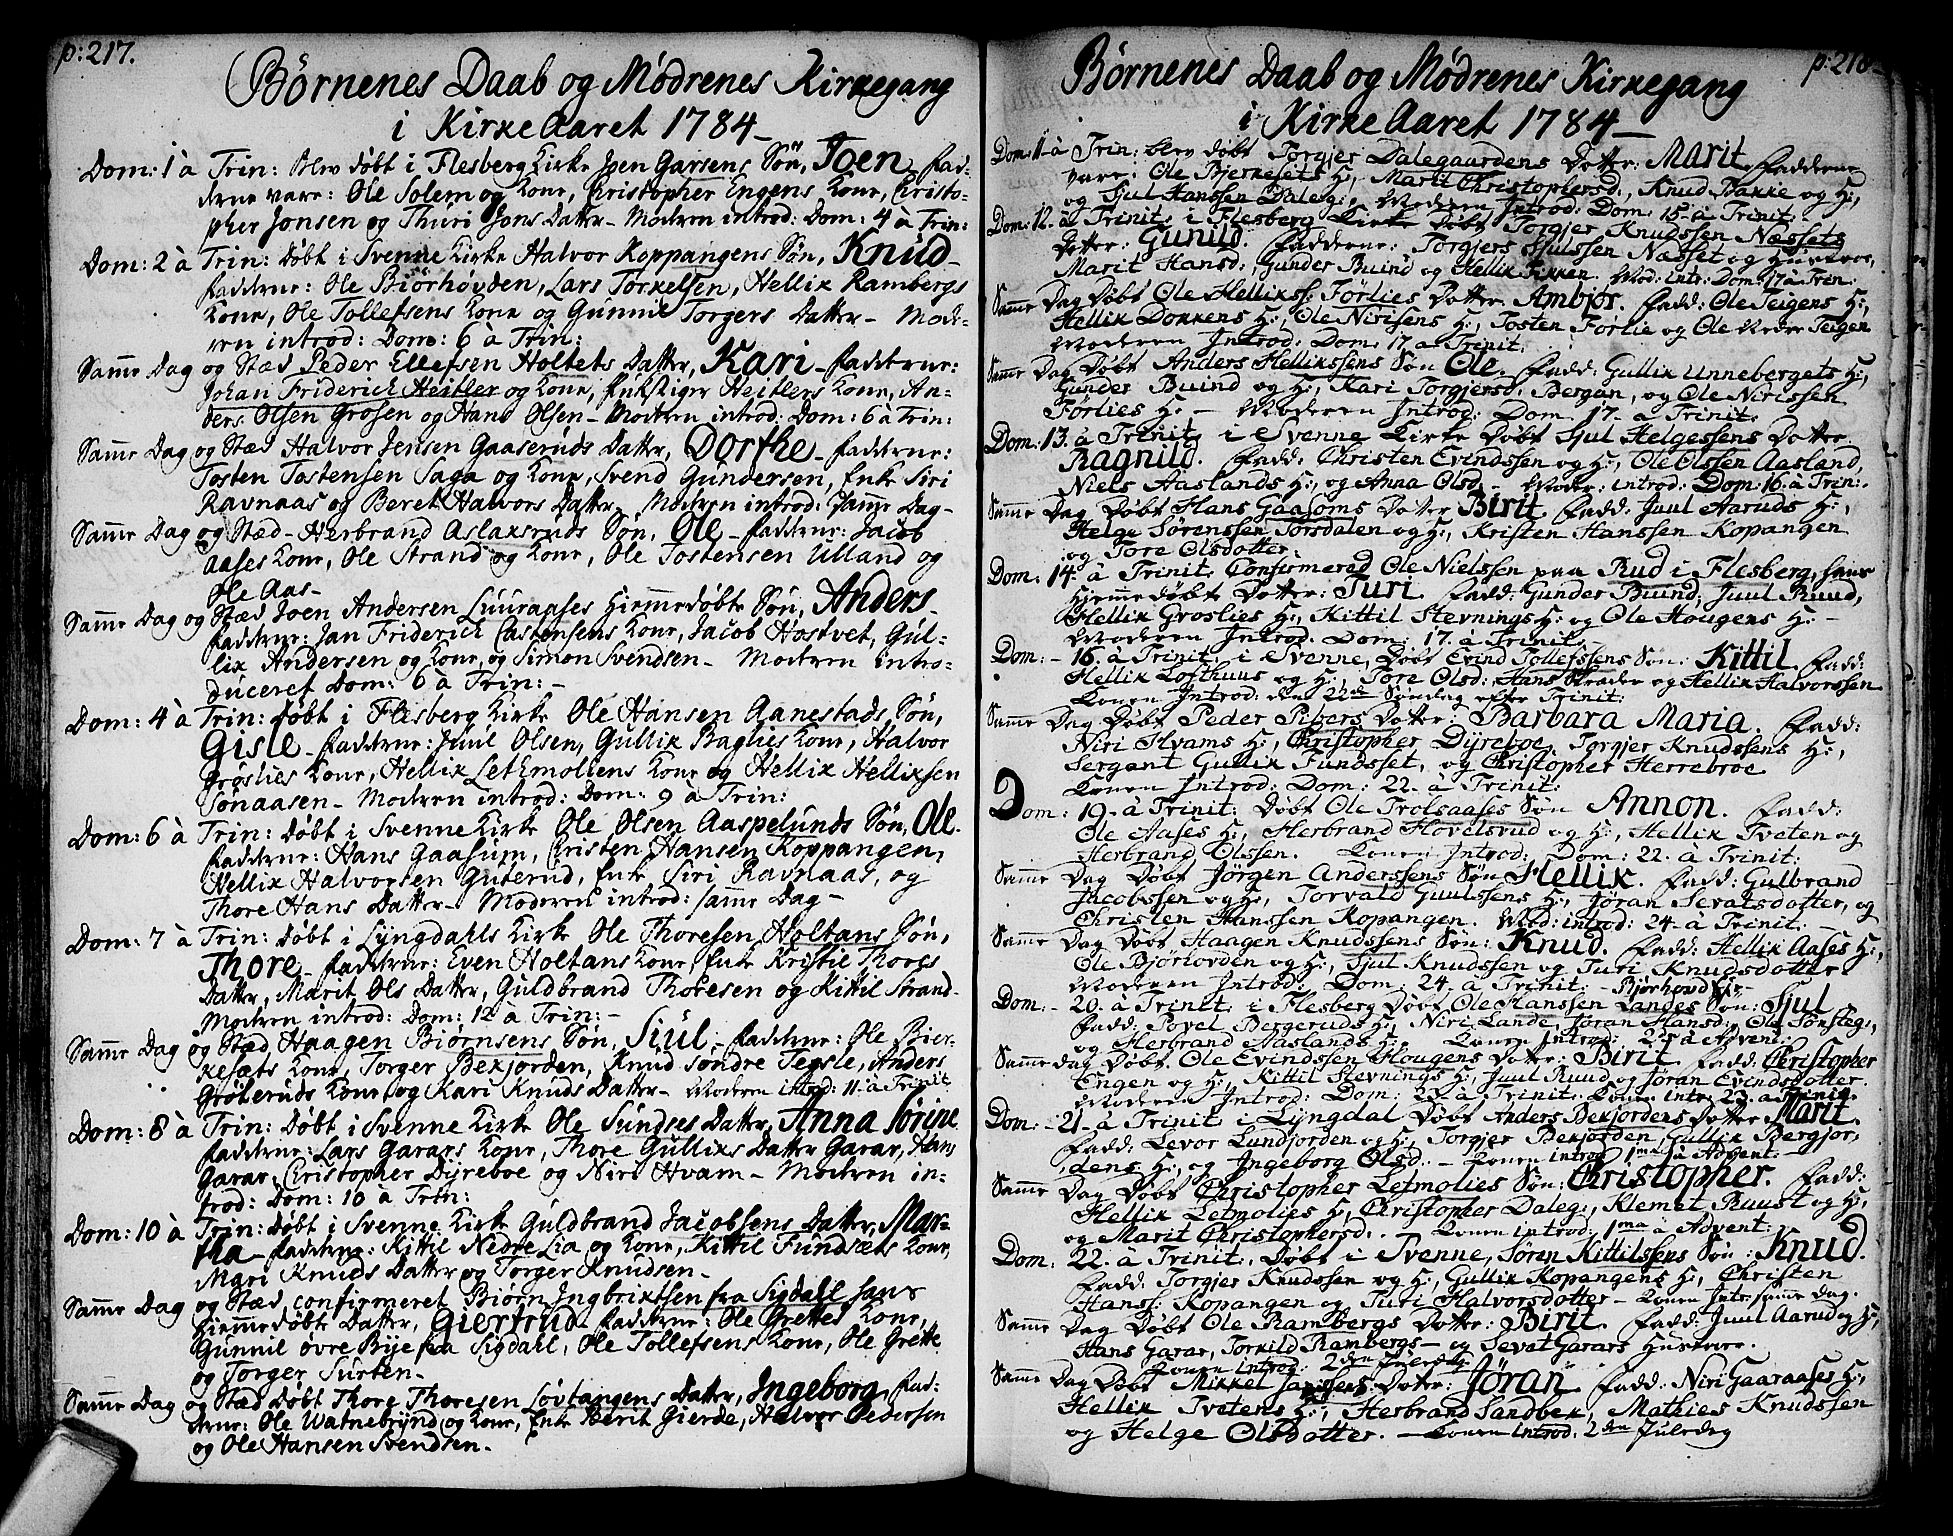 p: 217.
Börnenes Daab og Mødrenes Kirkegang
i Kirke Aaret 1784 –
Dom: 1 à Trin: blev døbt i Flesberg Kirke Joen Garsens Søn, Joen, fad-
derne vare: Ole Solem og Kone, Christopher Engens Kone, Christo-
pher Jonsen og Thuri Jons Datter – Modren introd: Dom: 4 à Trin:
Dom: 2 à Trin: døbt i Svenne Kirke Halvor Koppangens Søn, Knud –
fadderne: Ole Biörhövden, Lars Torkelsen, Hellik Rambergs
Kone, Ole Tollefsens Kone og Gunnil Torgers Datter – Mod-
ren introd: Dom: 6 à Trin:
Samme Dag og Stæd Peder Ellefsen Holtets Datter, Kari – fadderne:
Johan Friderich Heitler og Kone, Heitlers Kone, An-
ders Olsen Grosen og Hans Olsen – Modren introd: Dom: 6 à Trin:
Samme Dag og Stæd Halvor Jensen Gaaseruds Datter, Dorthe – fadderne:
Tosten Tostensen Saga og Kone, Svend Gundersen, Enke Siri
Ravnaas og Beret Halvors Datter – Modren introd: samme Dag –
Samme Dag og Stæd – Herbrand Aslaksruds Søn, Ole – fadderne: Jacob
Aases Kone, Ole Strand og Kone, Ole Tostensen Ulland og
Ole Aas –
Samme Dag og Stæd Joen Andersen Luuraases hiemmedøbte Søn, Anders –
fadderne: Jan Friderich Castensens Kone, Jacob Hostvet, Gul-
lik Andersen og Kone, og Simon Svendsen – Modren intro-
duceret Dom: 6 à Trin: –
Dom: 4 à Trin: døbt i Flesberg Kirke Ole Hansen Aanestads Søn,
Gisle – fadderne: Juul Olsen, Gullik Baglies Kone, Halvor
Gröslies Kone, Hellik Lethmoliens Kone og Hellik Helliksen
Sönaasen – Modren introd: Dom: 9 à Trin:
Dom: 6 à Trin: døbt i Svenne Kirke Ole Olsen Aaspelunds Søn, Ole.
fadderne: Hans Gaasum, Christen Hansen Koppangen,
Hellik Halvorsen Guterud, Enke Siri Ravnaas, og
Thore Hans Datter – Modren introd: samme Dag –
Dom: 7 à Trin: døbt i Lyngdahls Kirke Ole Thoresen Holtans Søn,
Thore – fadderne: Even Holtans Kone, Enke Kristie Thores
Datter, Marit Ols Datter, Guldbrand Thoresen og Kittil Strand –
Modren introd: Dom: 12 à Trin: –
Samme Dag og Stæd Haagen Biörnsens Søn, Siul – fadderne: Ole Bier-
kesæts Kone, Torger Bekjorden, Knud søndre Tegsle, Anders
Gröteruds Kone og Kari Knuds Datter – Modern introd: 11. à Trinit
Dom: 8 à Trin: døbt i Svenne Kirke Ole Sundses Datter, Anna Sørine
fadderne: Lars Garars Kone, Thore Gulliks Datter Garar, Hans
Garar, Christopher Dyreboe og Niri Hvam – Modren in-
trod: Dom: 10 à Trin:
Dom: 10 à Trin: døbt i Svenne Kirke Guldbrand Jacobsens Datter, Mar-
tha – fadderne: Kittil Nedre Lia og Kone, Kittil Fundsæts Kone,
Mari Knuds Datter og Torger Knudsen –
Samme Dag og Stæd confirmeret Biörn Ingbriktsen fra Sigdahl hans
hiemmedøbte Datter, Giertrud – fadderne: Ole Grettes Kone,
Gunnil övre Bye fra Sigdahl, Ole Tollefsens Kone, Ole Grette
og Torger Surten –
Samme Dag og Stæd døbt Thore Thoresen Lövtangens Datter, Ingeborg, fad-
derne: Ole Watnebrynd og Kone, Enke Berit Gierde, Halvor Pedersen
og Ole Hansen Svendsen –
p: 218
Börnenes Daab og Mødrenes Kirkegang
i Kirke Aaret 1784 –
Dom: 11 à Trin: blev døbt Torgjer Dalegaardens Dotter: Marit. Fadderne
vare: Ole Bjerkesets H:, Marit Christophersd:, Knud Bakke og H:,
og Sjul Hanssen Daleg:, Moderen Introd: Dom: 15 à Trinit.
Dom: 12. à Trinit: i Flesberg Kirke døbt Torgjer Knudssen Næssets
Dotter: Gunild. Fadderne: Torgjers Sjulssen Næsset og Hustroe,
Marit Hansd:, Gunder Buind og Hellik Fikken. Mod: intr: Dom: 17 à Trin:
Samme Dag døbt Ole Hellikss: Förlies Dotter: Ambjör. Fadd: Ole Teigens H:,
Hellik Dokkens H:, Ole Nirisens H:, Tosten Förlie og Ole Nedre Teigen
Moderen Introd: Dom: 17 à Trinit:
Samme Dag døbt Anders Hellikssens Søn Ole. Fadd: Gullik Unnebergets H:,
Gunder Buind og H:, Kari Torgjersd: Bergan, og Ole Nirissen
Förlies H: – Moderen Introd: Dom. 17. à Trinit.
Dom: 13. à Trinit: i Svenne Kirke døbt Sjul Helgessens Dotter
Ragnild. Fadd: Christen Evindssen og H:, Ole Olssen Aasland,
Niels Aaslands H:, og Anna Olsd. – Moder: introd: Dom: 16 à Trin:
Samme Dag døbt Hans Gaasoms Dotter Birit. Fadd: Juul Aaruds H:,
Helge Sørenssen Torsdalen og H:, Kristen Hanssen Kopangen
og Tore Olsdotter:
Dom: 14. à Trinit: Confirmered Ole Nielssen paa Rud i Flesberg, hans
hjemedøbte Dotter: Turi. Fadd: Gunder Buind, Juul Ruud,
Hellik Groslies H:, Kittil Stevnings H: og Ole Hougens H: –
Moderen Introd: Dom: 17. à Trinit: –
Dom: – 16. à Trinit: i Svenne, Døbt Evind Tollefssens Søn: Kittil. Fadd:
Hellik Lofthuus og H:, Tore Olsd: Hans Stræder og Hellik Halvorssen
Konen Introd: den 22de Søndag efter Trinit:
Samme Dag Døbt Peder Pibers Dotter: Barbara Maria. Fadd:
Niri Hvams H:, Christopher Dyreboe, Torgjer Knudssens H:,
Sergant Gullik Fundsset, og Christopher Herrebroe
Konen Introd: Dom: 22. à Trinit:
Dom: 19. à Trinit: Døbt Ole Trolsaases Søn Annon. Fadd:
Ole Aases H:, Herbrand Hovelsrud og H:, Hellik Tveten og
Herbrand Olssen. Konen Introd: Dom: 22. à Trinit:
Samme Dag Døbt Jørgen Anderssens Søn Hellik. Fadd: Gulbrand
Jacobssen og H:, Torvald Guulssens H:, Jøran Sevatsdotter, og
Christen Hanssen Kopangen. Mod: introd: 24. à Trinit:
Samme Dag Døbt Haagen Knudssens Søn: Knud. Fadd: Hellik Aases H:,
Ole Bjørhovden og H:, Sjul Knudssen og Turi Knudsdotter
Moderen Introd: Dom: 24. à Trinit: – Bjørhovd Eje –
Dom: – 20. à Trinit: i Flesberg Døbt Ole Hanssen Landes Søn: Sjul
Fadd: Tovel Bergeruds H:, Niri Lande, Jøran Hansd:, Ole Sønsteg:,
og Herbrand Aaslands H: Konen Introd: 2den à Advent:
Samme dag Døbt Ole Evindssen Hougens Dotter: Birit. Fadd: Christopher
Engen og H:, Kittil Stevnings H:, Juul Ruud og Jøran Evindsdotter.
Moderen Introd: Dom: 23 à Trinit: Konen intr: 23. à Trinit:
Dom: – 21. à Trinit: i Lyngdal Døbt Anders Bekjordens Dotter Marit.
Fadd: Levor Lundjorden og H:, Torgjer Bekjorden, Gullik Bergjor-
dens H:, og Ingeborg Olsd: – Konen introd 1ma à Advent: –
Samme Dag Døbt Christopher Letmolies Søn: Christopher. Fadd:
Hellik Letmolies H:, Christopher Daleg:, Klemet Ruust og H:,
og Marit Christophersd:. – Konen introd: 1ma à Advent:
Dom: 22. à Trinit:, Døbt i Svenne, Søren Kittilssens Søn: Knud.
Fadd: Torgjer Knudssen og H:, Gullik Kopangens H:, Christen
Hanss: Kopangen og Turi Halvorsdotter – Konen Intr: samme Dag.
Samme Dag Døbt Ole Rambergs Dotter: Birit. Fadd: Juul Aarud og H:,
Hans Garar, Tornild Rambergs – og Sevat Garars Hustroe.
Konen introd: 2den Juledag
Samme Dag Døbt Mikkel Dotter: Jöran. Fadd: Niri Gaaraases H:,
Hellik Tvetens H:, Herbrand Sandbek, Mathies Knudssen
og Helge Olsdotter. – Konen Introd: 2den Juledag